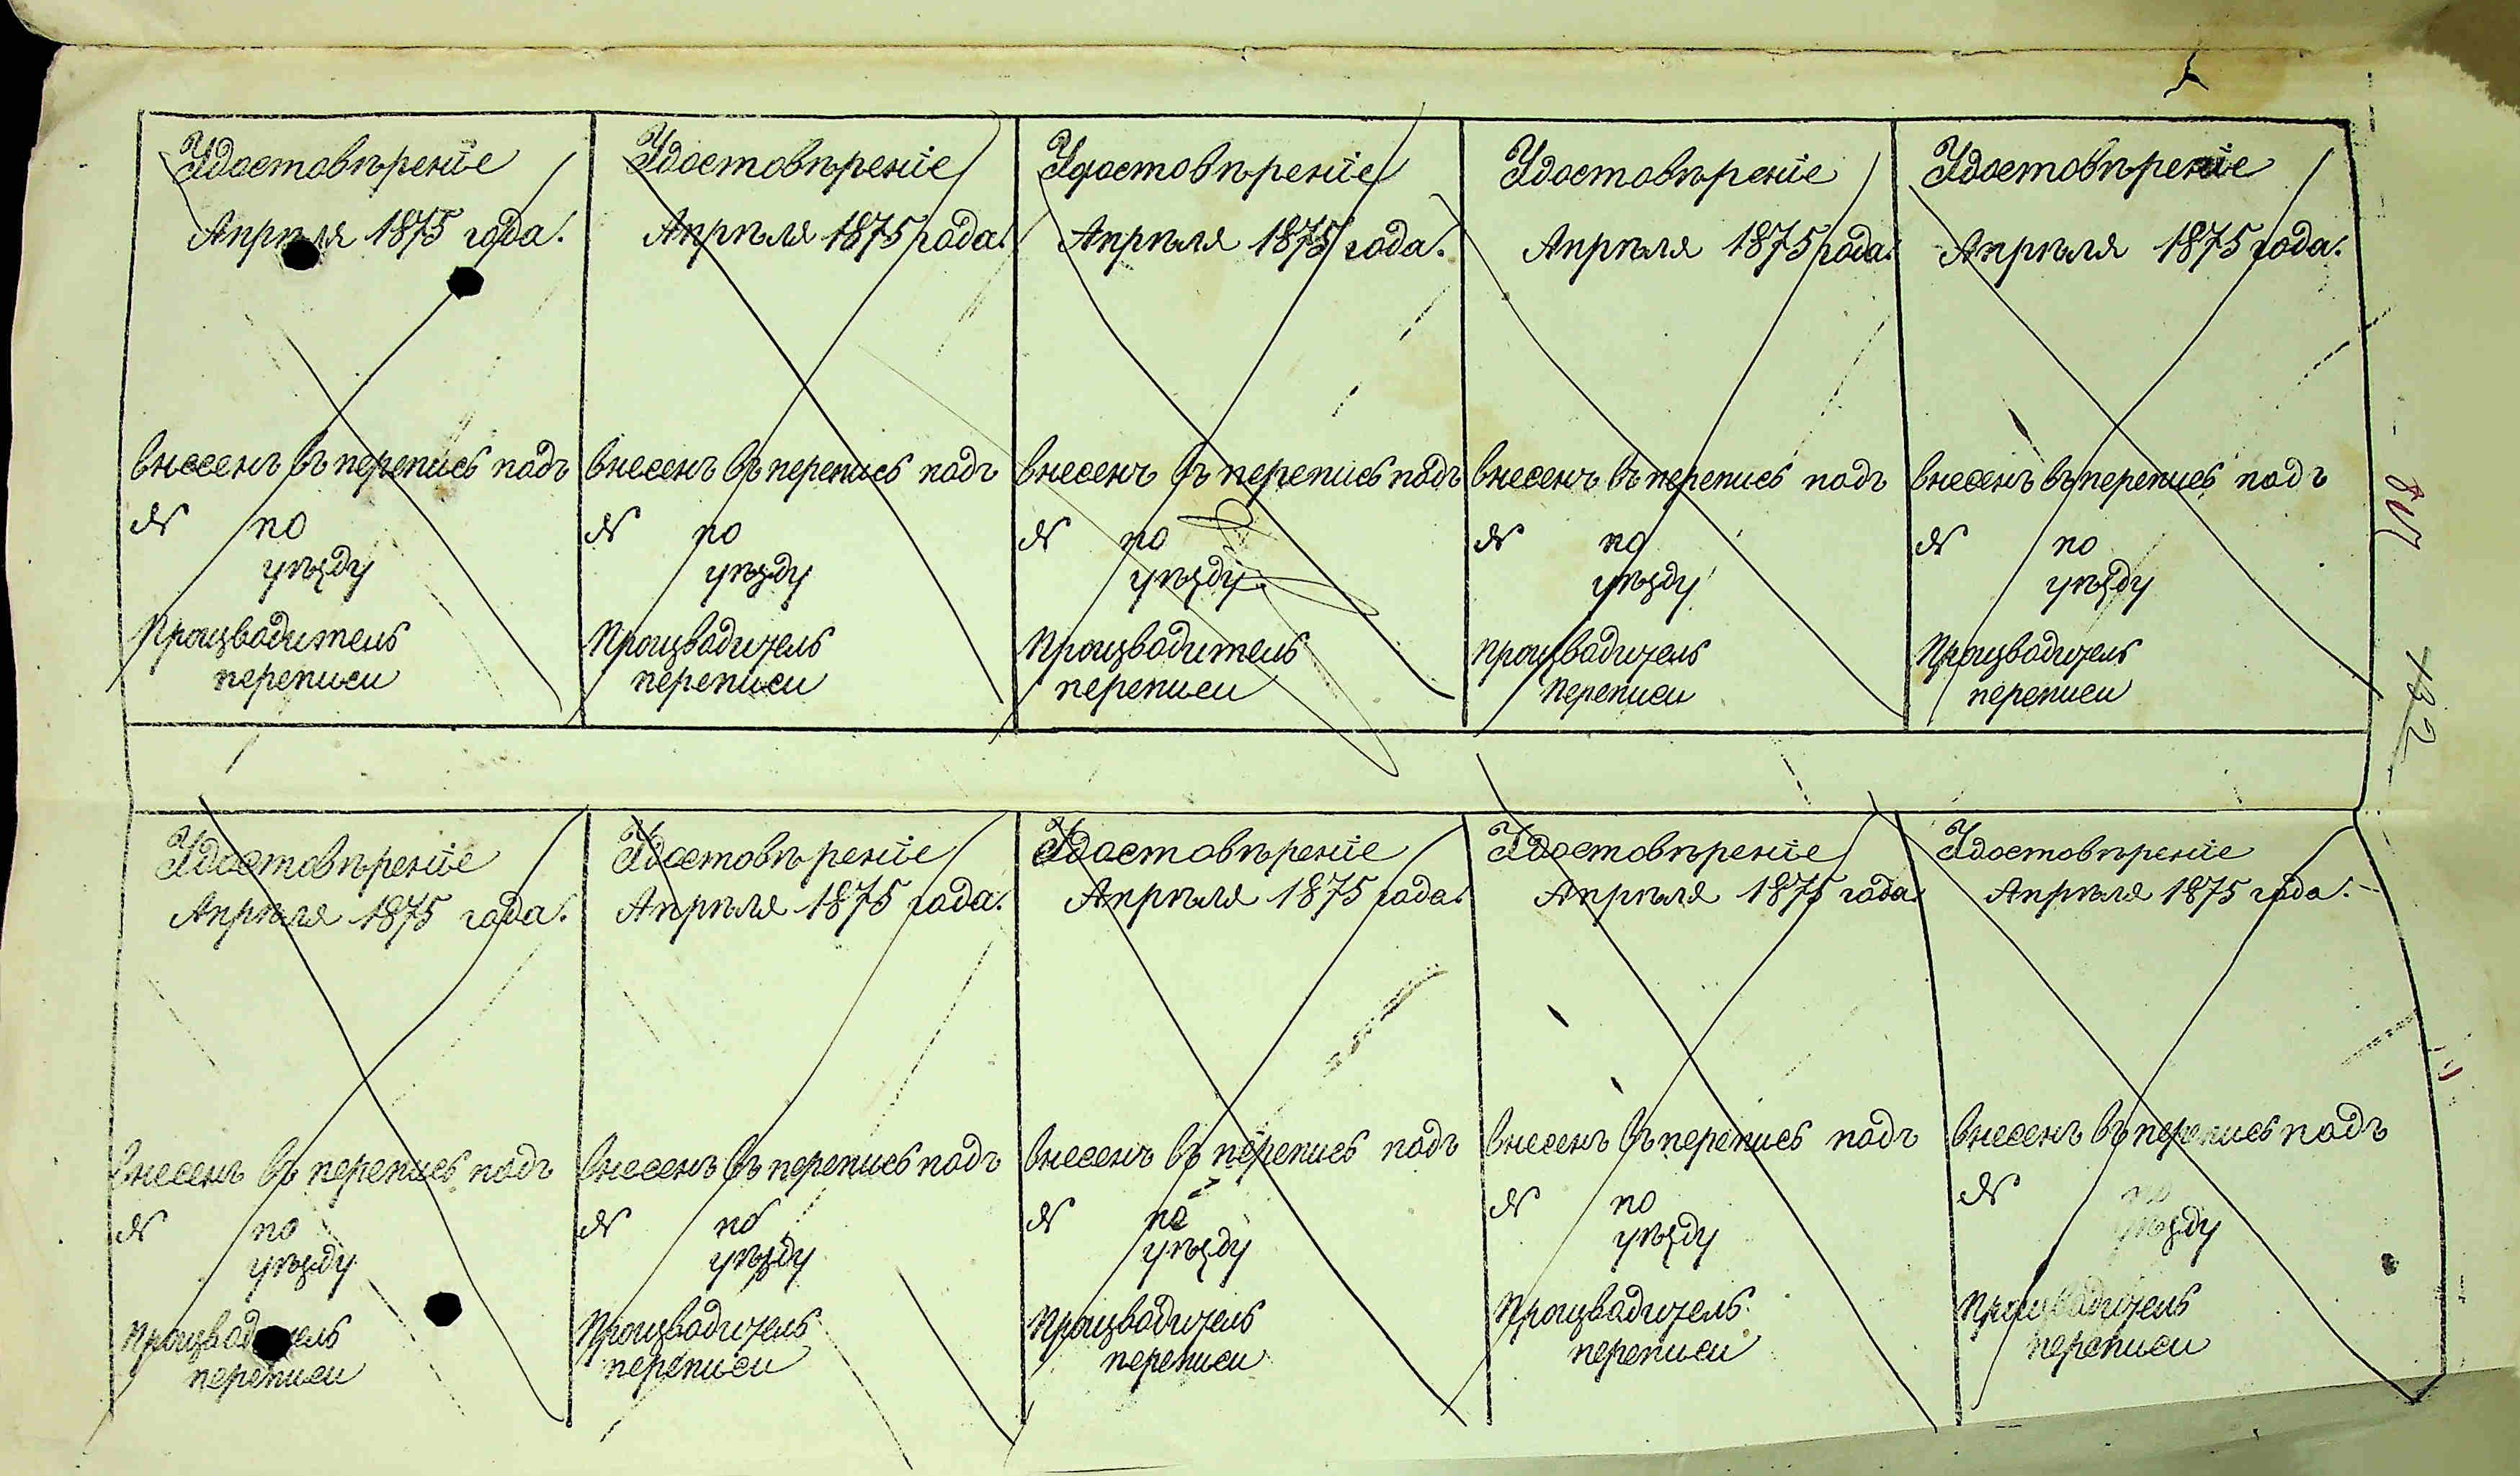 Удостовѣренiе
Апрѣля 1875 года.
внесенъ въ перепись подъ
№ по
уѣзду
Производитель
переписи
Удостовѣренiе
Апрѣля 1875 года.
внесенъ въ перепись подъ
№ по
уѣзду
Производитель
переписи
Удостовѣренiе
Апрѣля 1875 года.
внесенъ въ перепись подъ
№ по
уѣзду
Производитель
переписи
Удостовѣренiе
Апрѣля 1875 года.
внесенъ въ перепись подъ
№ по
уѣзду
Производитель
переписи
Удостовѣренiе
Апрѣля 1875 года.
внесенъ въ перепись подъ
№ по
уѣзду
Производитель
переписи
132
Удостовѣренiе
Апрѣля 1875 года.
внесенъ въ перепись подъ
№ по
уѣзду
Производитель
переписи
Удостовѣренiе
Апрѣля 1875 года.
внесенъ въ перепись подъ
№ по
уѣзду
Производитель
переписи
Удостовѣренiе
Апрѣля 1875 года.
внесенъ въ перепись подъ
№ по
уѣзду
Производитель
переписи
Удостовѣренiе
Апрѣля 1875 года.
внесенъ въ перепись подъ
№ по
уѣзду
Производитель
переписи
Удостовѣренiе
Апрѣля 1875 года.
внесенъ въ перепись подъ
№ по
уѣзду
Производитель
переписи